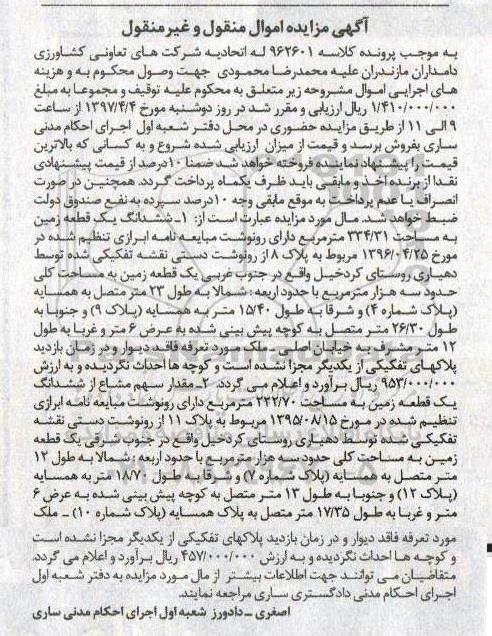 آگهی مزایده اموال منقول و غیر منقول
به موجب پرونده کلاسه ۹۶۲۶۰۱ لـه اتحادیه شرکت های تعاونی کشاورزی
دامداران مازندران علیه محمدرضا محمودی جهت وصول محکوم به و هزینه
های اجرایی اموال مشروحه زیر متعلق به محکوم علیه توقیف و مجموعا به مبلغ
۱/۴۱۰/۰۰۰/۰۰۰ ریال ارزیابی و مقرر شد در روز دوشنبه مورخ ۱۳۹۷/۴/۴ از ساعت
۹ الی ۱۱ از طریق مزایده حضوری در محل دفتر شعبه اول اجرای احکام مدنی
ساری بفروش برسد و قیمت از میزان ارزیابی شده شروع و به کسانی که بالاترین
قیمت را پیشنهاد نمایند فروخته خواهد شد ضمنا ۱۰درصد از قیمت پیشنهادی
نقدا از برنده اخذ و مابقی باید ظرف یکماه پرداخت گردد. همچنین در صورت
انصراف یا عدم پرداخت به موقع مابقی وجه ۱۰درصد سپرده به نفع صندوق دولت
ضبط خواهد شد. مال مورد مزایده عبارت است از: ۱ـ ششدانگ یک قطعه زمین
به مساحت ۳۳۴/۳۱ مترمربع دارای رونوشت مبایعه نامه ابرازی تنظیم شده در
مورخ ۱۳۹۶/۰۴/۲۵ مربوط به پلاک ۸ از رونوشت دستی نقشه تفکیکی شده توسط
دهیاری روستای کردخیل واقع در جنوب غربی یک قطعه زمین به مساحت کلی
حدود سه هزار مترمربع با حدود اربعه : شمالا به طول ۲۳ متر متصل به همسایه
(پلاک شماره ۴) و شرقا به طول ۱۵/۴۰ متر به همسایه (پلاک ۹) و جنوبا به
طول ۲۶/۳۰ متر متصل به کوچه پیش بینی شده به عرض ۶ متر و غربا به طول
۱۲ متر مشرف به خیابان اصلی. ملک مورد تعرفه فاقد دیوار و در زمان بازدید
پلاکهای تفکیکی از یکدیگر مجزا نشده است و کوچه ها احداث نگردیده و به ارزش
۹۵۳/۰۰۰/۰۰۰ ریال برآورد و اعلام می گردد ۲ـ مقدار سهم مشاع از ششدانگ
یک قطعه زمین به مساحت ۲۲۲/۷۰ مترمربع دارای رونوشت مبایعه نامه ابرازی
تنظیم شده در مورخ ۱۳۹۵/۰۸/۱۵ مربوط به پلاک ۱۱ از رونوشت دستی نقشه
تفکیکی شده توسط دهیاری روستای کردخیل واقع در جنوب شرقی یک قطعه
زمین به مساحت کلی حدود سه هزار مترمربع با حدود اربعه : شمالا به طول ۱۲
متر متصل به همسایه (پلاک شماره ۷) و شرقا به طول ۱۸/۷۰ متر به همسایه
(پلاک ۱۲) و جنوبا به طول ۱۳ متر متصل به کوچه پیش بینی شده به عرض ۶
متر و غربا به طول ۱۷/۳۵ متر متصل به پلاک همسایه (پلاک شماره ۱۰) ـ ملک
مورد تعرفه فاقد دیوار و در زمان بازدید پلاکهای تفکیکی از یکدیگر مجزا نشده است
و کوچه ها احداث نگردیده و به ارزش ۴۵۷/۰۰۰/۰۰۰ ریال برآورد و اعلام می گردد.
متقاضیان می توانند جهت اطلاعات بیشتر از مال مورد مزایده به دفتر شعبه اول
اجرای احکام مدنی دادگستری ساری مراجعه نمایند.
اصغری ـ دادورز شعبه اول اجرای احکام مدنی ساری